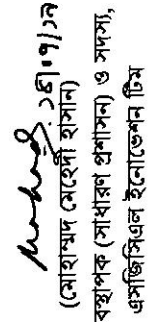 Mahadi ১৫।০৭।১৯
(মোহাম্মদ মেহেদী হাসান)
বস্থাপক (সাধারণ প্রশাসন) ও সদস্য,
এসজিসিএল ইনোভেশন টিম